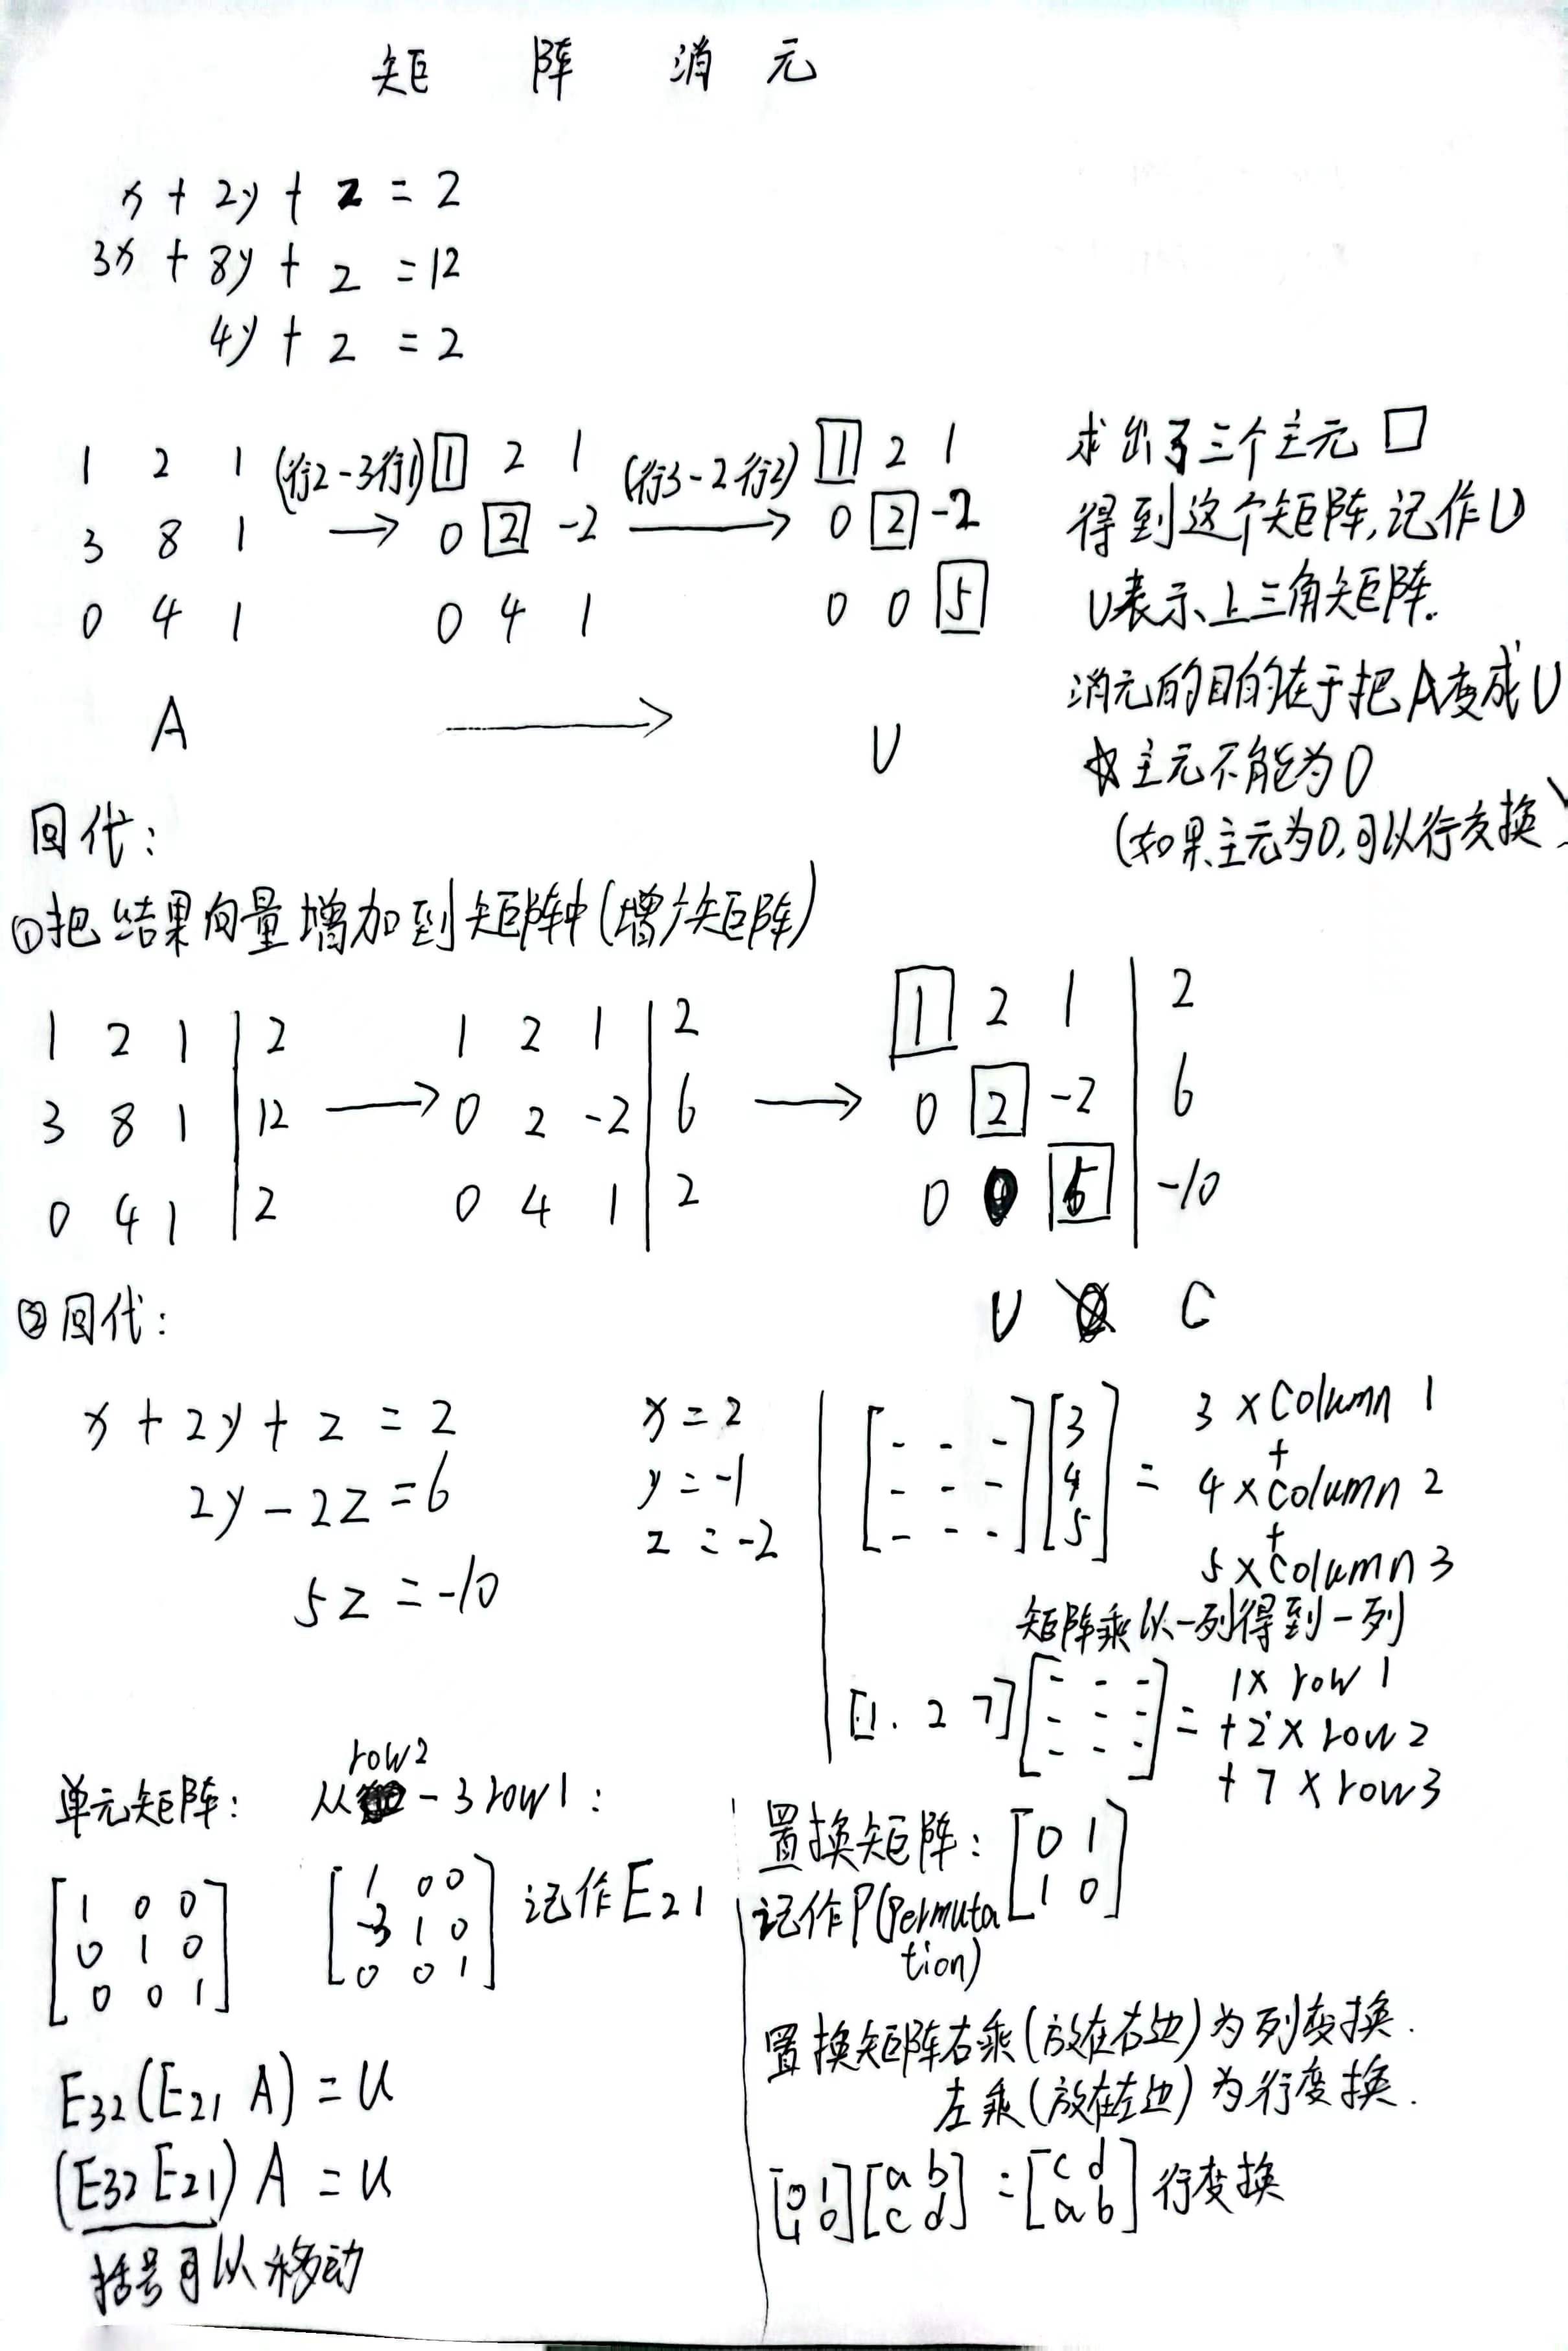 矩阵消元
x + 2y + z = 2
3x + 8y + z = 12
4y + z = 2
1 2 1 (行2-3行1) 1 2 1 (行3-2行2) 1 2 1
3 8 1 → 0 2 -2 → 0 2 -2
0 4 1 0 4 1 0 0 5
A → U
求出了三个主元 □
得到这个矩阵,记作U
U表示上三角矩阵.
消元的目的在于把A变成U
☆主元不能为0
(如果主元为0,可以行交换)
回代:
①把结果向量增加到矩阵中(增广矩阵)
1 2 1 | 2 1 2 1 | 2 1 2 1 | 2
3 8 1 | 12 → 0 2 -2 | 6 → 0 2 -2 | 6
0 4 1 | 2 0 4 1 | 2 0 0 5 | -10
U C
②回代:
x + 2y + z = 2
2y - 2z = 6
5z = -10
x = 2
y = -1
z = -2
[- - -] [3] 3 × column 1
+
[- - -] [4] = 4 × column 2
+
[- - -] [5] 5 × column 3
矩阵乘以一列得到一列
[- - -] 1 × row 1
[1. 2 7] [- - -] = + 2 × row 2
[- - -] + 7 × row 3
单元矩阵: 从row2 - 3row1:
[1 0 0] [1 0 0]
[0 1 0] [-3 1 0] 记作E21
[0 0 1] [0 0 1]
E32(E21 A) = U
(E32 E21) A = U
括号可以移动
置换矩阵: [0 1]
[1 0]
记作P(Permuta
tion)
置换矩阵右乘(放在右边)为列变换.
左乘(放在左边)为行变换.
[0 1] [a b] = [c d] 行变换
[1 0] [c d] [a b]